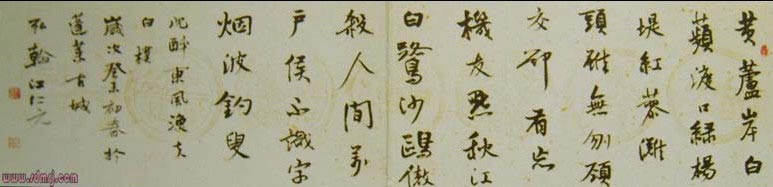 黄蘆岸白
蘋渡口緑楊
堤紅蓼灘
頭雖無刎頸
交卻有忘
機友點秋江
白鷺沙鷗傲
殺人間万
戶侯不識字
烟波釣叟
沉醉東風漁夫
白樸
歲次癸未初春於
蓬萊古城
翰江仁元
www.sdmsj.com